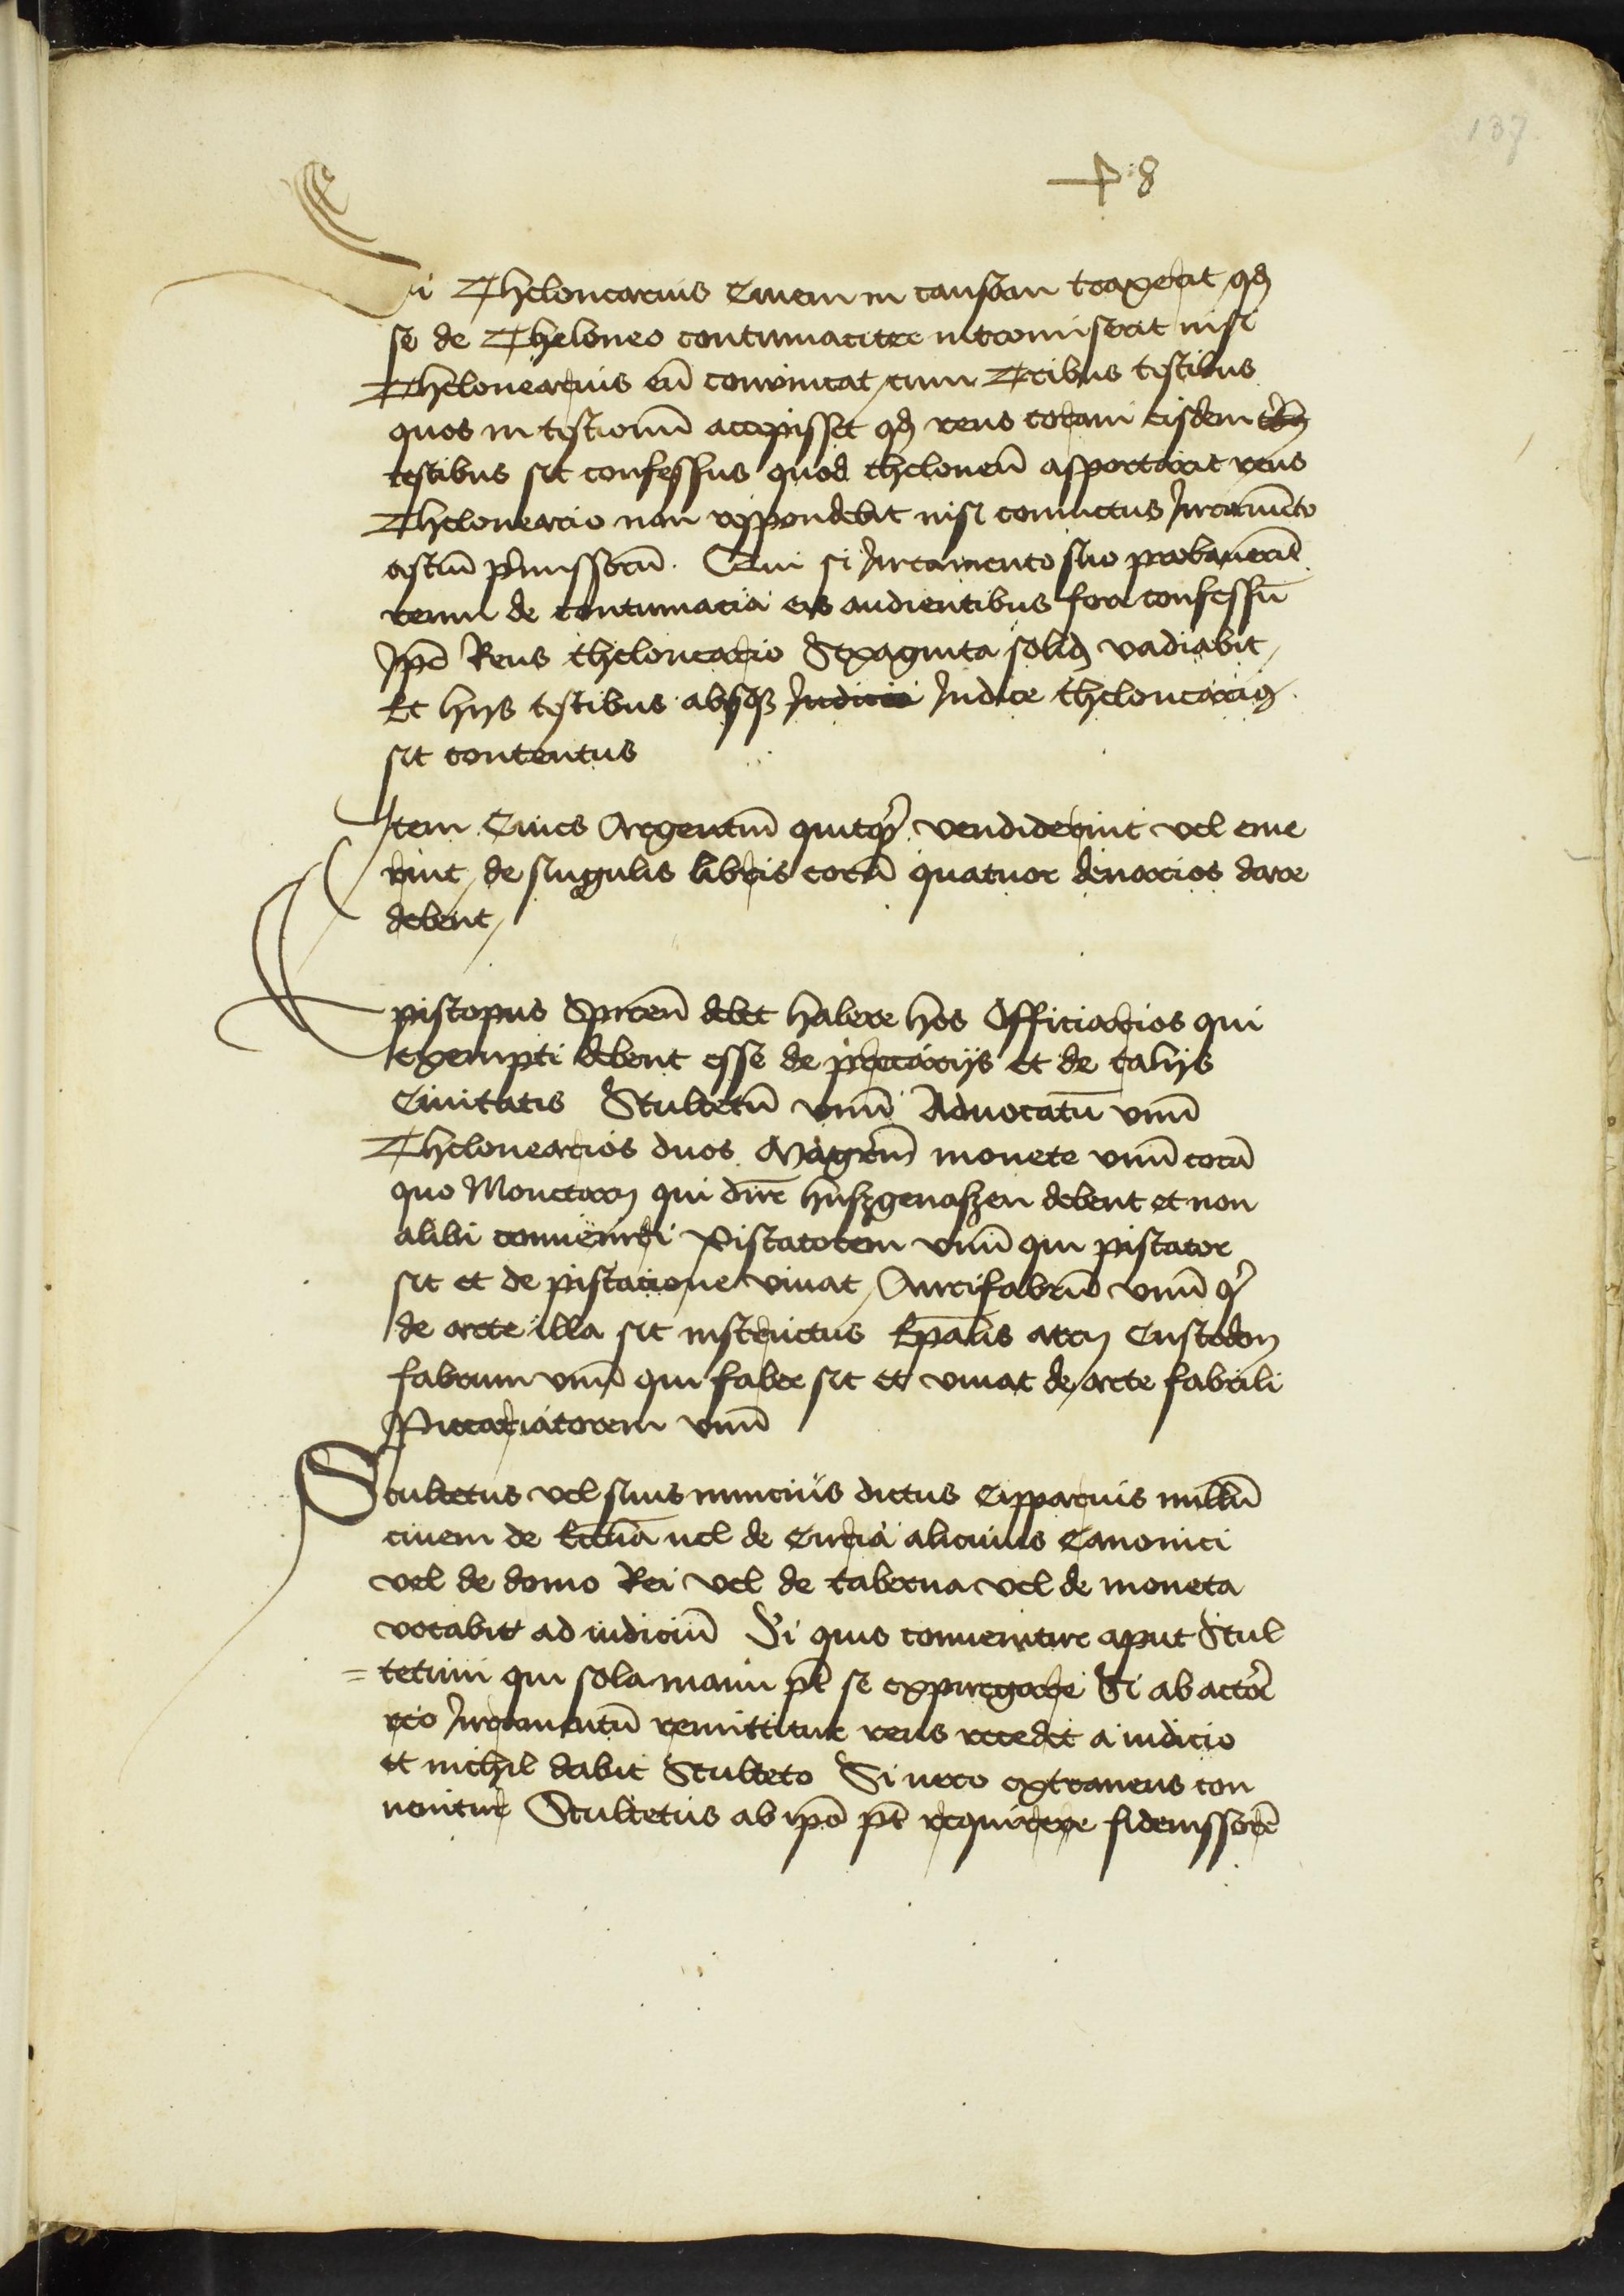 137
8
Si Thelonearius Ciuem in causam traxerit qd
se de Theloneo contumaciter intromiserit nisi
Thelonearius eū conuincat cum Tribus testibus
quos in testimoniū accepisset qd reus coram eisdem
testibus sit confessus quod theloneū asportarit reus
Theloneario non respondebit nisi conuictus Juramēto
testiū p̄missorū. Qui si Juramento suo probauerīt
reum de contumacia eis audientibus fore confessū
Jpē Reus theloneario Sexaginta solid vadiabit
Et hijs testibus absqȝ Judicio Judice theloneariꝯ
sit contentus
Item Ciues Argentū quicqȝ vendiderint vel eme
rint de singulis libris eorū quatuor denarios dare
debent
Episcopus Spireñ debet habere hos Officiarios qui
exempti debent esse de precarijs et de talijs
Ciuitatis Scultetū vnū Aduocatū vnū
Thelonearios duos Magrm̄ monete vnū corā
quo Monetarij qui dicūt huszgenoszen debent et non
alibi conueniri Pistatorem vnū qui pistator
sit et de pistacione viuat Aurifabrū vnū q̄
de arte illa sit instructus Epalis atrij Custodem
fabrum vnū qui faber sit et viuat de arte fabrili
vnū
Scultetus vel suus nuncius dictus Cipparius nullū
ciuem de Ecclīa uel de Curia alicuius Canonici
vel de domo Rei vel de taberna vel de moneta
vocabit ad iudiciū Si quis conuenitur aput Scul
=tetum qui sola manu pt̄ se expurgare Si ab actōr
reo Juramentū remittitur reus recedit a iudicio
et nichil dabit Sculteto Si uero extraneus con
uenitur Scultetus ab ipō pt̄ requirere fideiussorē